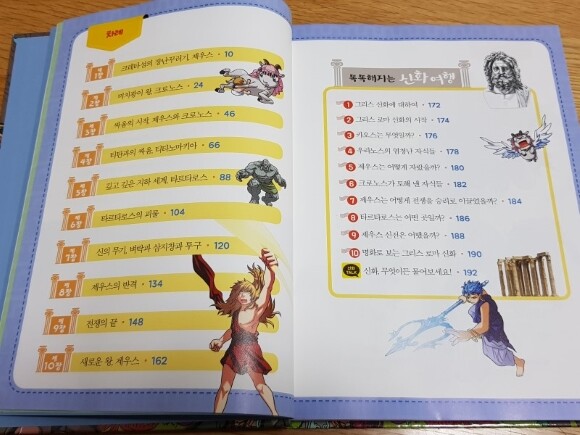 차례
제1장 크레타섬의 장난꾸러기, 제우스 • 10
제2장 여자팡이 왕 크로노스 • 24
제3장 싸움의 시작, 제우스와 크로노스 • 46
제4장 티탄과의 싸움, 티타노마키아 • 66
제5장 깊고 깊은 지하 세계, 타르타로스 • 88
제6장 타르타로스의 괴물 • 104
제7장 신의 무기, 벼락과 삼지창과 투구 • 120
제8장 제우스의 반격 • 134
제9장 전쟁의 끝 • 148
제10장 새로운 왕, 제우스 • 162
똑똑해지는 신화 여행
1 그리스 신화에 대하여 • 172
2 그리스 로마 신화의 시작 • 174
3 카오스는 무엇일까? • 176
4 우라노스의 위정난 자식들 • 178
5 제우스는 어떻게 자랐을까? • 180
6 크로노스가 토해 낸 자식들 • 182
7 제우스는 어떻게 전쟁을 승리로 이끌었을까? • 184
8 타르타로스는 어떤 곳일까? • 186
9 제우스 신전은 어땠을까? • 188
10 명화로 보는 그리스 로마 신화 • 190
신화, 무엇이든 물어보세요! • 192